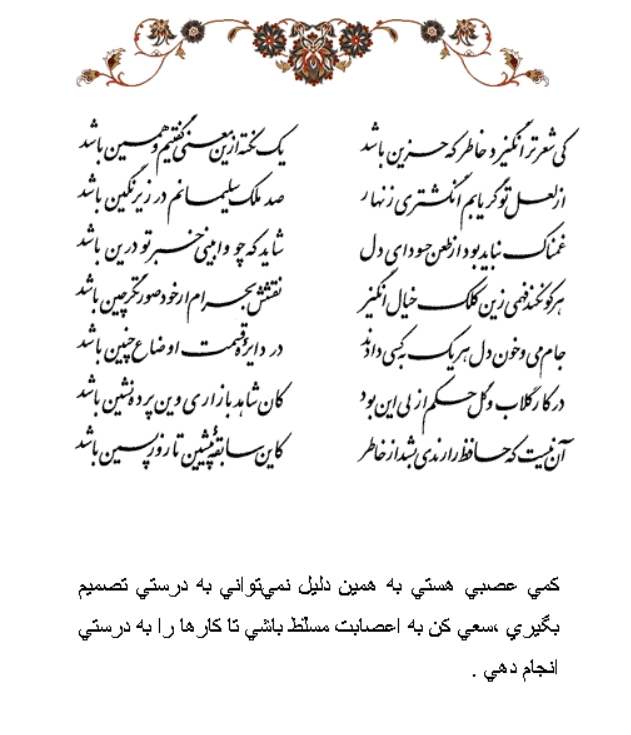 کی شعر تر انگیزد خاطر که حزین باشد یک نکته ازین معنی گفتیم و همین باشد
از لعل تو گر یابم انگشتری زنهار صد ملک سلیمانم در زیر نگین باشد
غمناک نباید بود از طعن حسود ای دل شاید که چو وابینی خیر تو درین باشد
هرکو نکند فهمی زین کلک خیال انگیز نقشش بحرام ار خود صورتگر چین باشد
جام می و خون دل هر یک به کسی دادند در دایرۀ قسمت اوضاع چنین باشد
در کار گلاب و گل حکم ازلی این بود کان شاهد بازاری وین پرده نشین باشد
آن نیست که حافظ را رندی بشد از خاطر کاین سابقۀ پیشین تا روز پسین باشد
كمي عصبي هستي به همين دليل نمي‌تواني به درستي تصميم
بگيري ،سعي كن به اعصابت مسلّط باشي تا كارها را به درستي
انجام دهي .